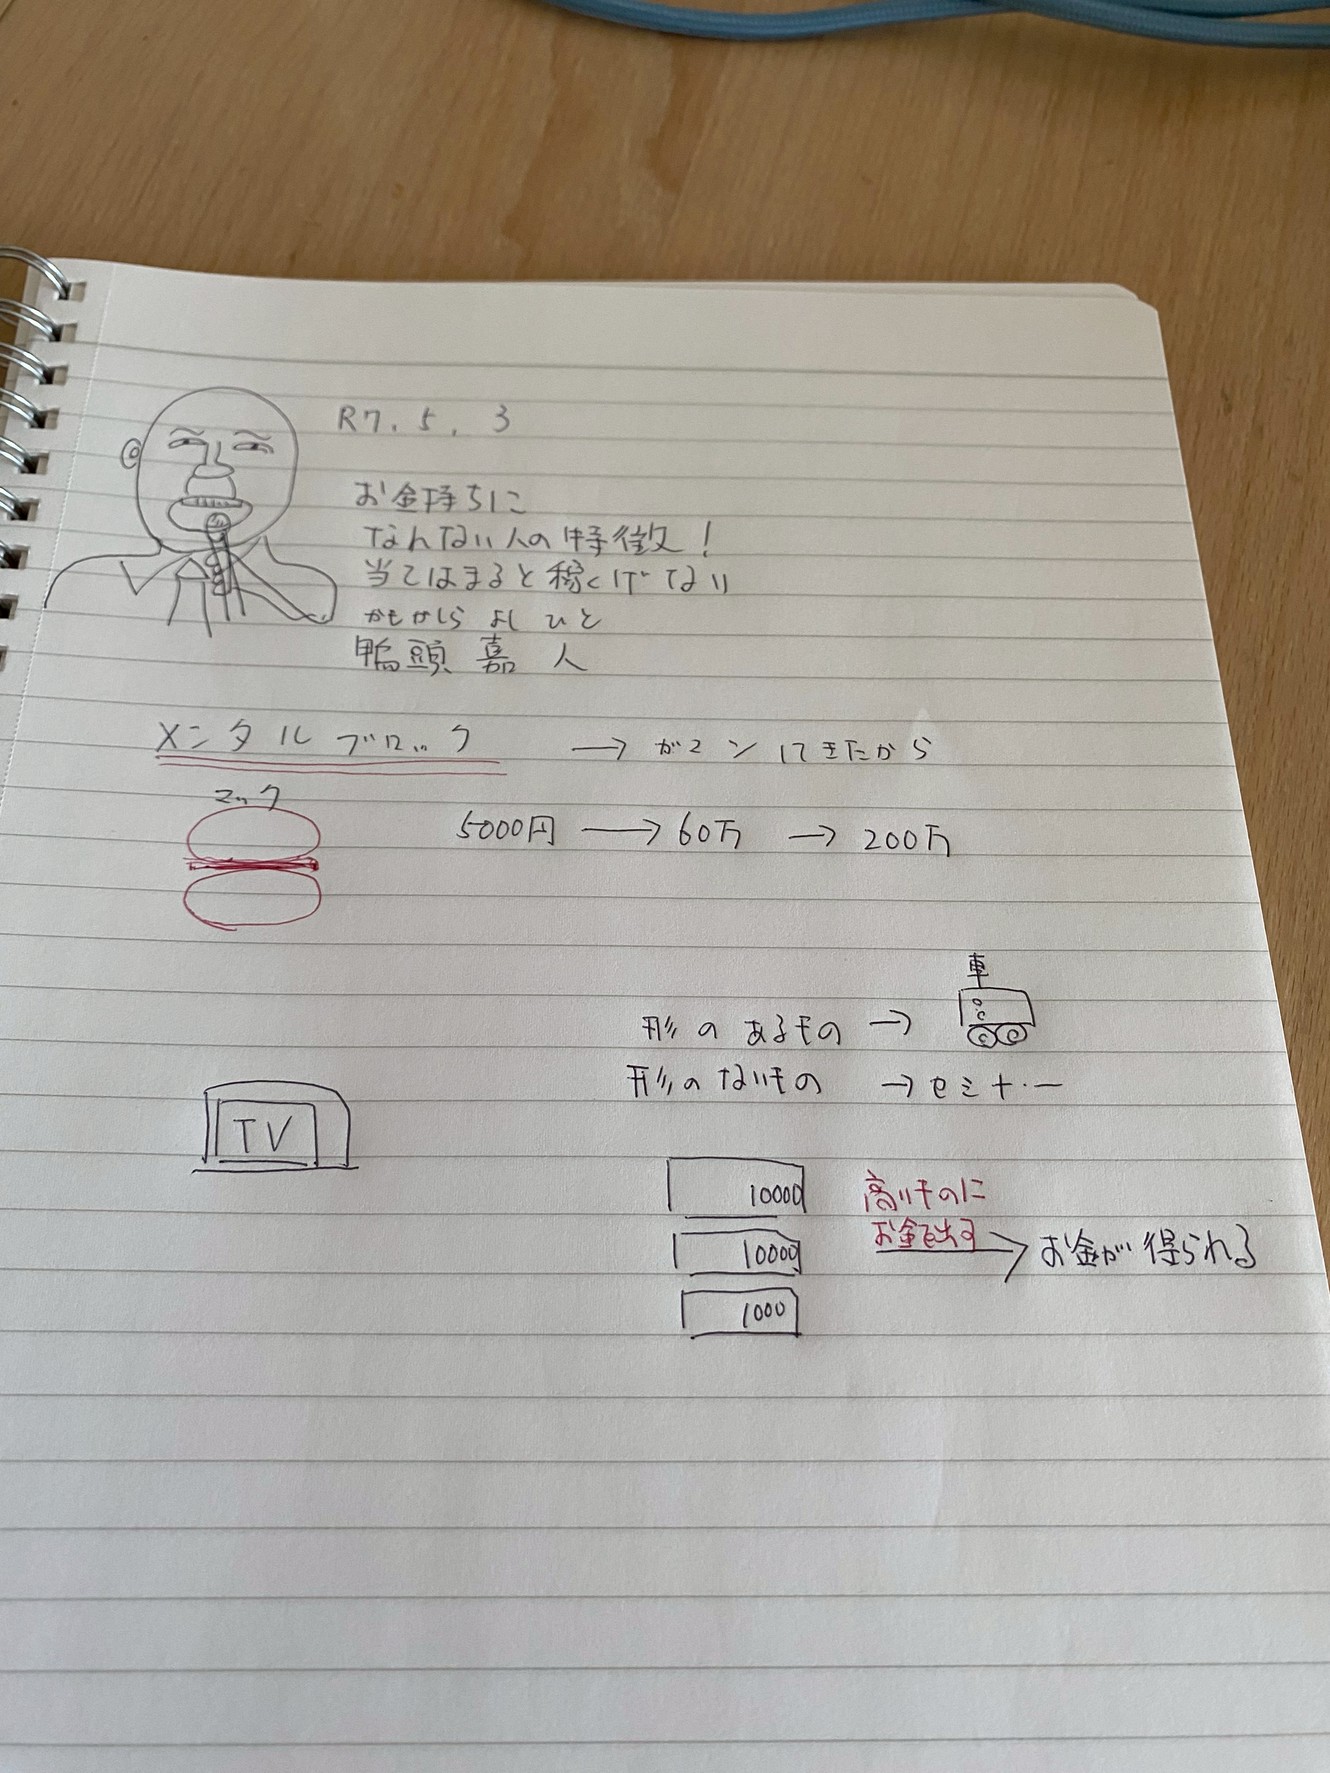 R7.5.3
お金持ちに
なれない人の特徴!
当てはまると稼げない
かもがしら よしひと
鴨頭嘉人
メンタルブロック → ガマンしてきたから
マック
5000円 → 60万 → 200万
車
形のあるもの →
形のないもの → セミナー
TV
10000
10000
1000
高いものに
お金を出す → お金が得られる